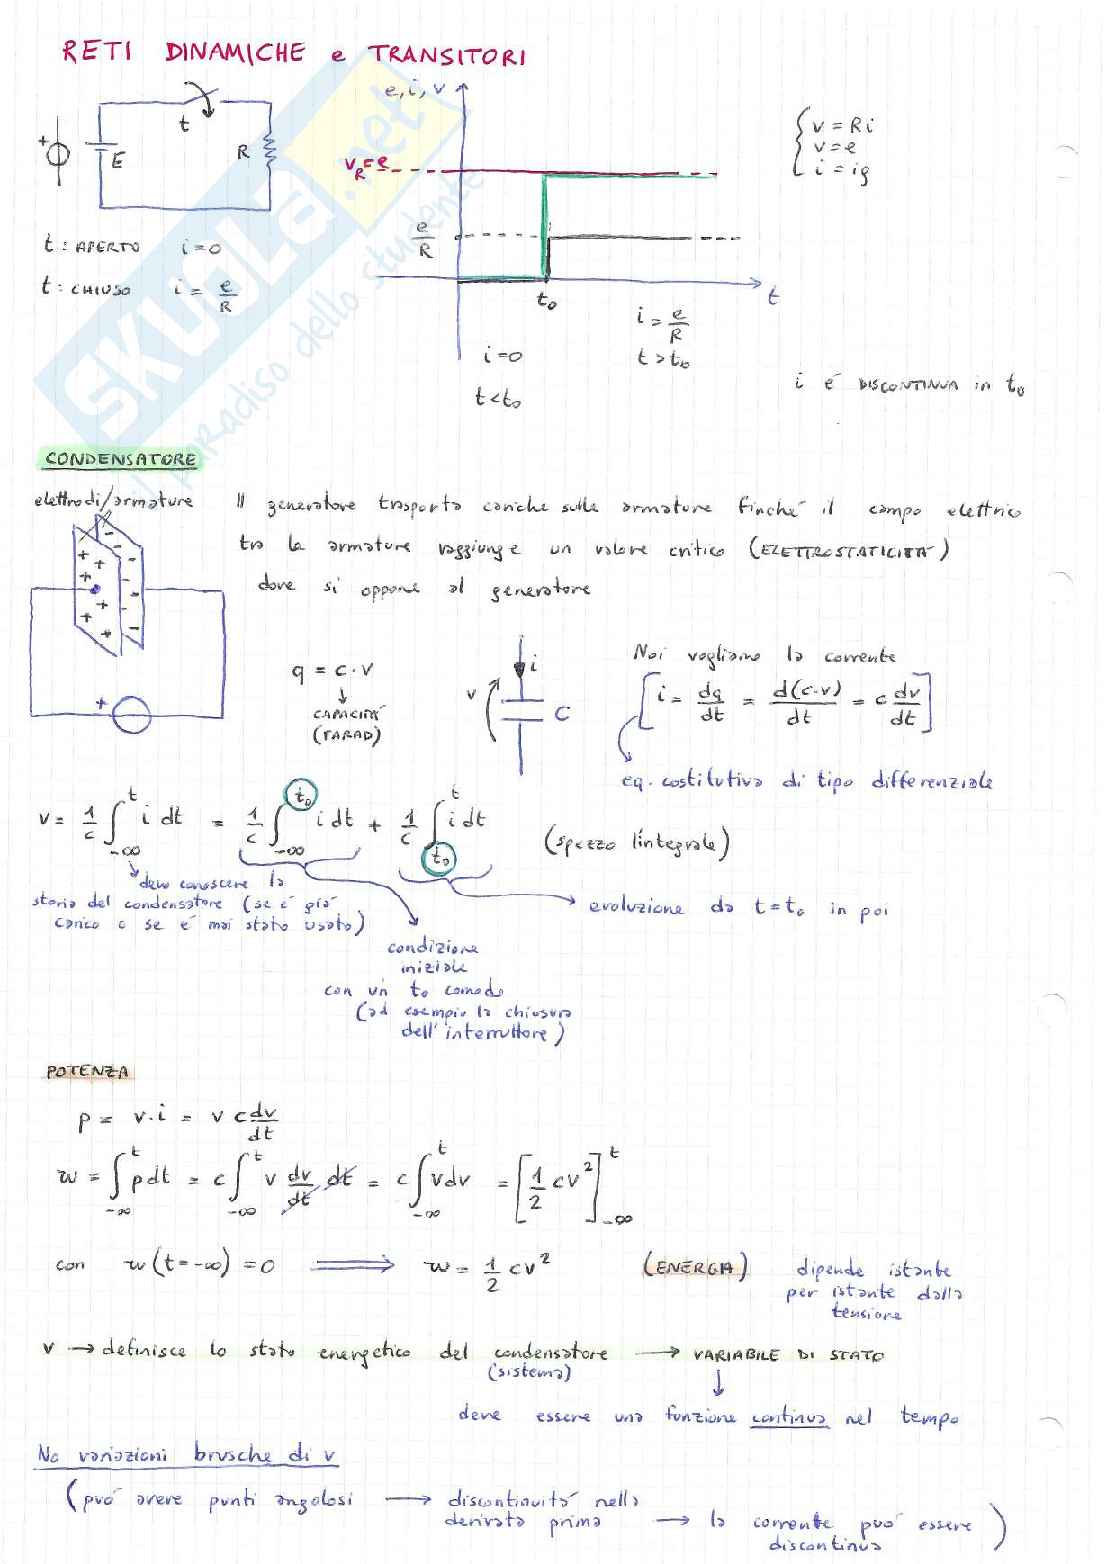 RETI DINAMICHE e TRANSITORI
e, i, v
t
+
E
R
v_R = e
e/R
t₀
t
{ v = Ri
v = e
i = ig
t: APERTO i=0
t: CHIUSO i = e/R
i = e/R
t > t₀
i=0
t < t₀
i é DISCONTINUA in t₀
SKUOLA.net
il paradiso dello studente
CONDENSATORE
elettrodi/armature
Il generatore trasporta cariche sulle armature finché il campo elettrico
tra le armature raggiunge un valore critico (ELETTROSTATICITÀ)
dove si oppone al generatore
q = c · v
↓
CAPACITÀ
(FARAD)
v
i
C
Noi vogliamo la corrente
[ i = dq/dt = d(c·v)/dt = c dv/dt ]
eq. costitutiva di tipo differenziale
v = 1/c ∫_{-∞}^{t} i dt = 1/c ∫_{-∞}^{t₀} i dt + 1/c ∫_{t₀}^{t} i dt (spezzo l'integrale)
devo conoscere la
storia del condensatore (se é giá
carico o se é mai stato usato)
evoluzione da t=t₀ in poi
condizione
iniziale
con un t₀ comodo
(ad esempio la chiusura
dell'interruttore)
POTENZA
p = v·i = v c dv/dt
w = ∫_{-∞}^{t} p dt = c ∫_{-∞}^{t} v dv/dt dt = c ∫_{-∞}^{t} v dv = [1/2 cv²]_{-∞}^{t}
con w(t=-∞) = 0 ⟹ w = 1/2 cv² (ENERGIA) dipende istante
per istante dalla
tensione
v → definisce lo stato energetico del condensatore → VARIABILE DI STATO
(sistema)
↓
deve essere una funzione continua nel tempo
No variazioni brusche di v
(puó avere punti angolosi → discontinuitá nella
derivata prima → la corrente puó essere
discontinua)